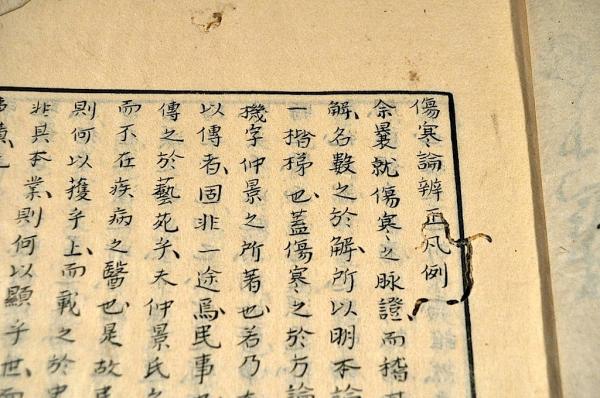 傷寒論辨正凡例
余曩就傷寒之脉證而稽
解名數之於解所以明本論
一揩梯也蓋傷寒之於方論
機字仲景之所著也若乃
以傳者固非一途焉民事
傳之於藝苑乎夫仲景氏之
而不在疾病之醫也是故
則何以獲乎上而載之於
非其本業則何以顯乎世而